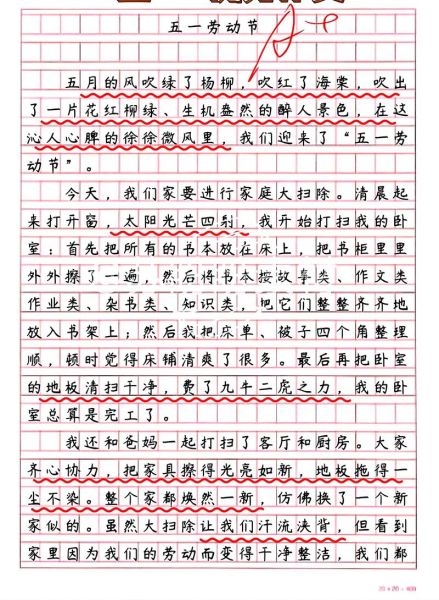 五一劳动节
A+
五月的风吹绿了杨柳，吹红了海棠，吹出
了一片花红柳绿、生机盎然的醉人景色，在这
沁人心脾的徐徐微风里，我们迎来了“五一劳
动节”。
今天，我们家要进行家庭大扫除。清晨起
来打开窗，太阳光芒四射，我开始打扫我的卧
室：首先把所有的书本放在床上，把书柜里里
外外擦了一遍，然后将书本按故事类、作文类
作业类、杂书类、知识类，把它们整整齐齐地
放入书架上；然后我把床单、被子四个角整理
顺，顿时觉得床铺清爽了很多。最后再把卧室
的地板清扫干净，费了九牛二虎之力，我的卧
室总算是完工了。
我还和爸妈一起打扫了客厅和厨房。大家
齐心协力，把家具擦得光亮如新，地板拖得一
尘不染。整个家都焕然一新，仿佛换了一个新
家似的。虽然大扫除让我们汗流浃背，但看到
家里因为我们的劳动而变得干净整洁，我们都
20×20=400